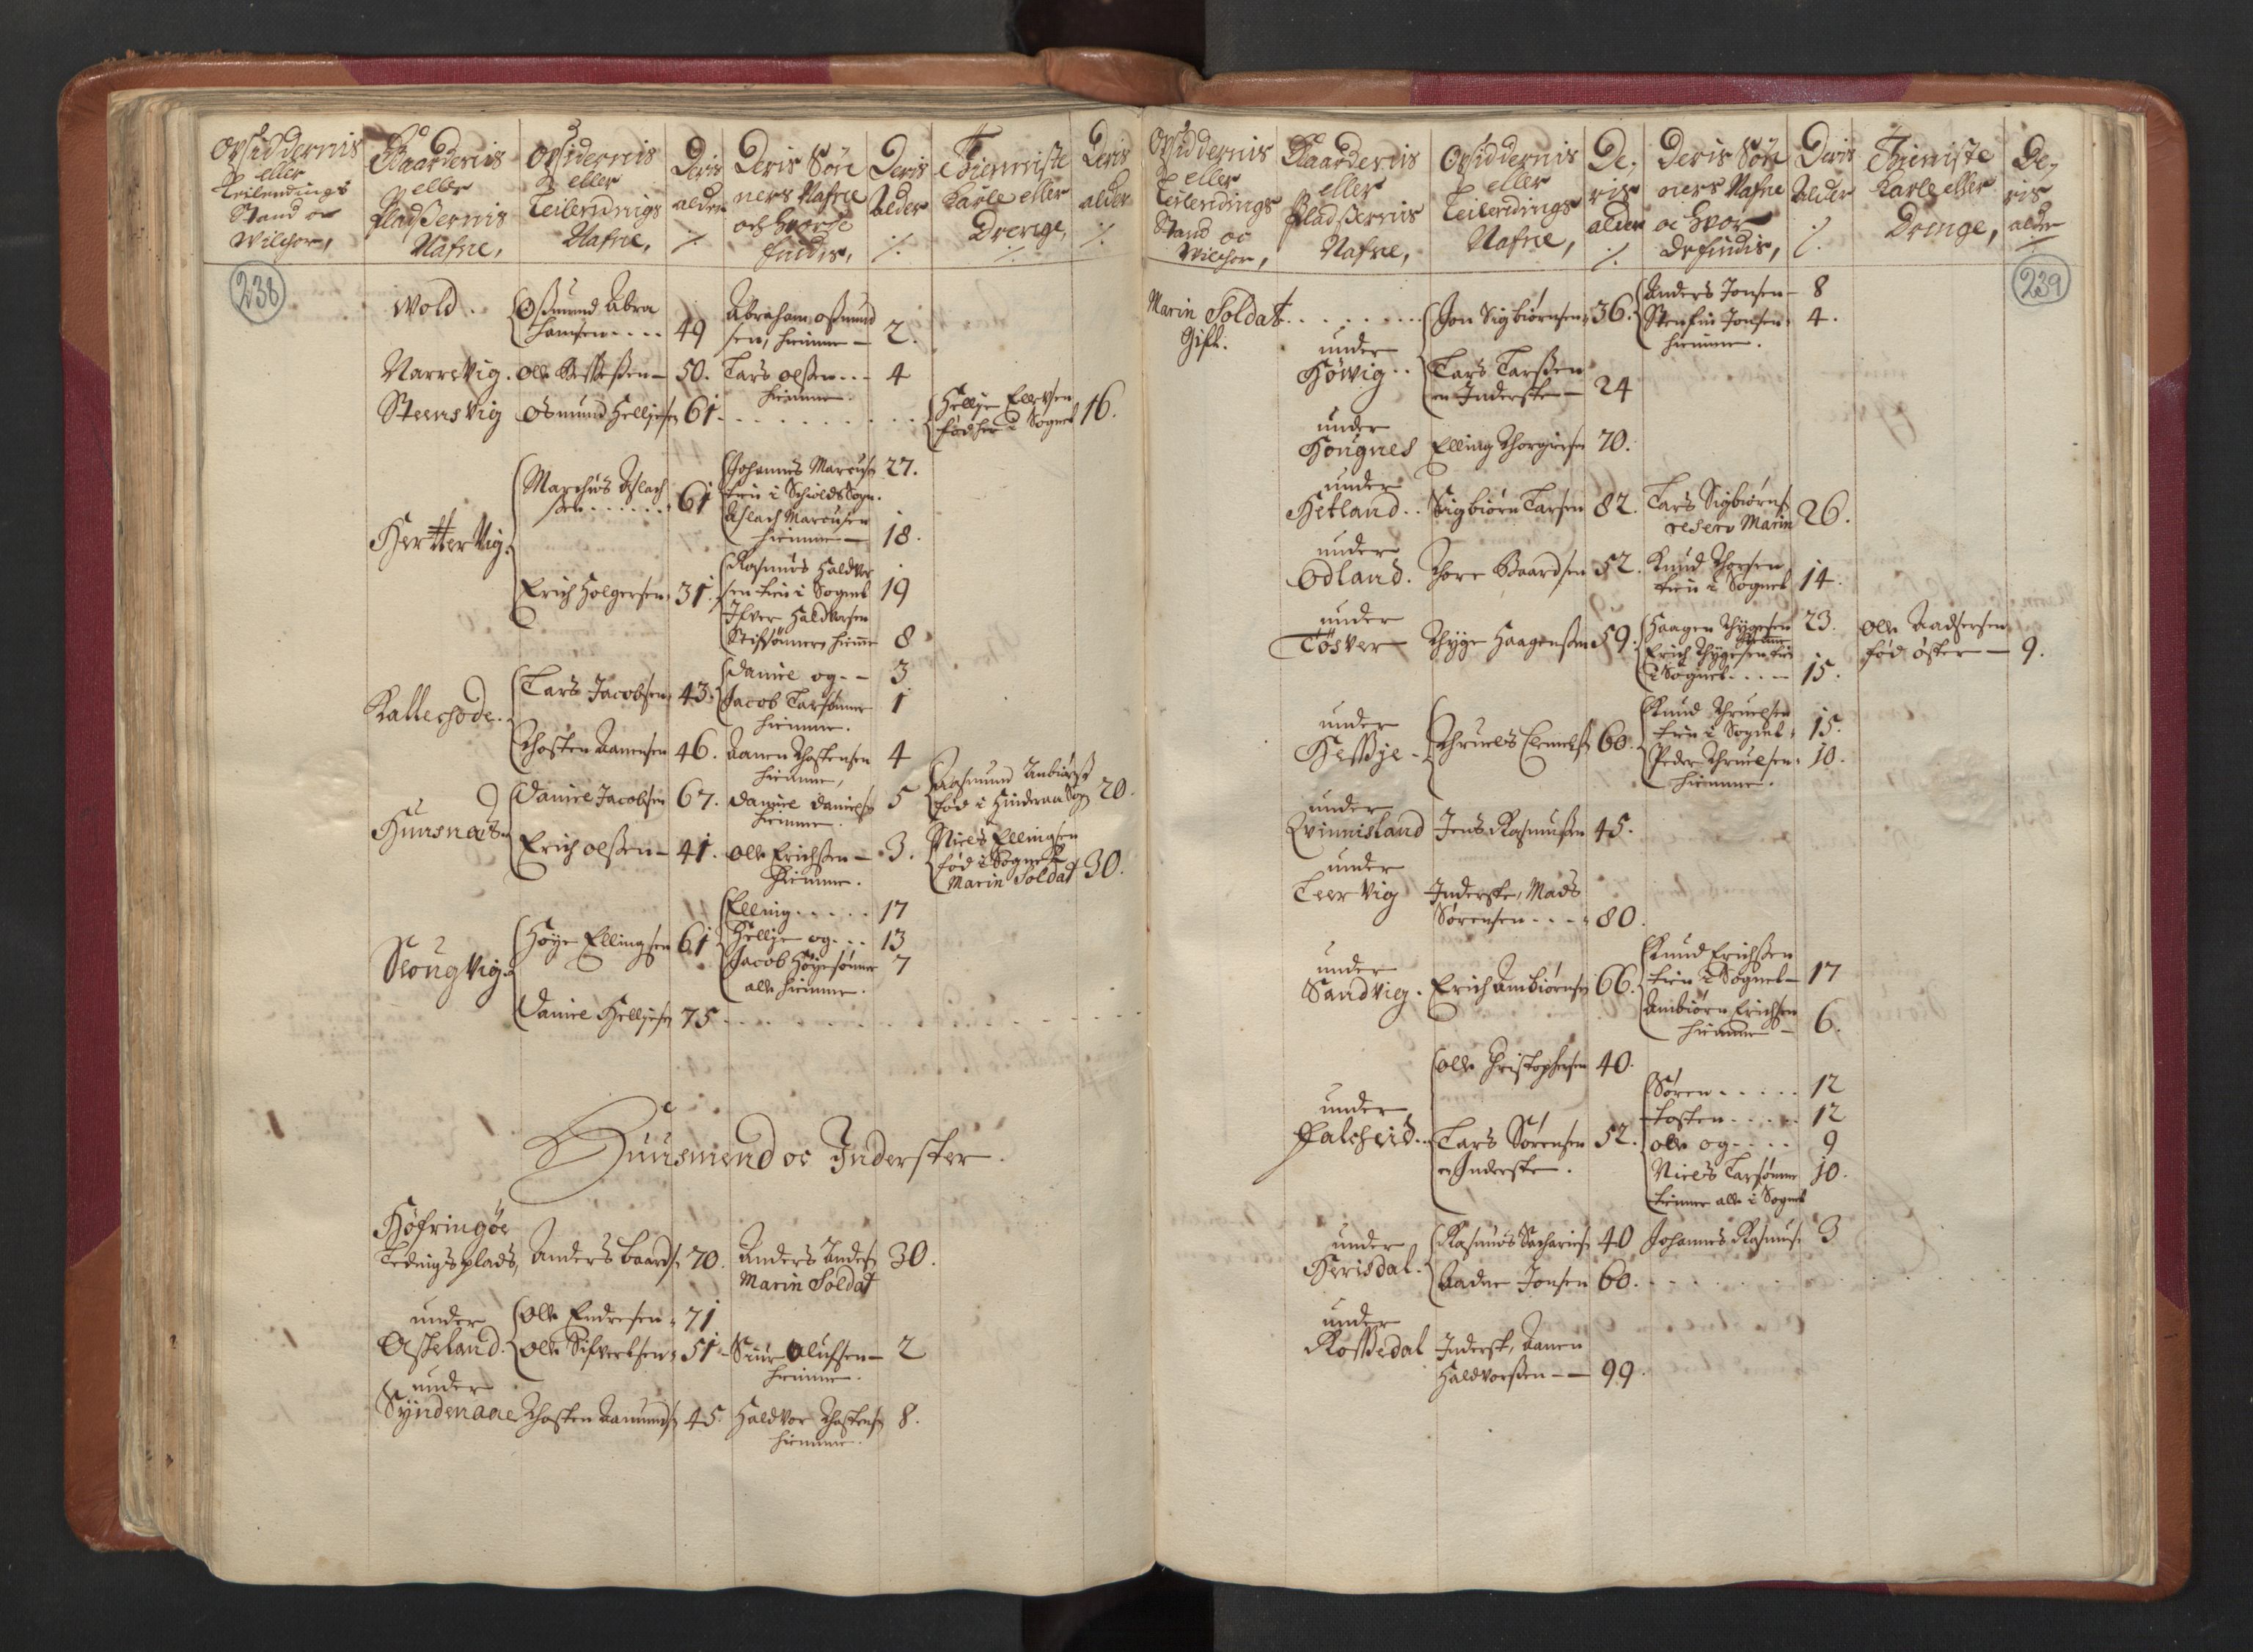 Opsiddernis
eller
Leilendings
Stand oc
Wilchor,
Gaardernis
eller
Pladßernis
Nafne,
Opsidernis
eller
Leilendings
Nafne,
Deris
alder
Deris Søn
ners Nafne
och hvor de
findis,
Deris
Alder
Thienniste
Karle eller
Drenge,
Deris
alder
238
Wold . Oßmund Abra
hamsen - - - - 49 Abraham oßmund
sen, hiemme - 2.
Narrevig . Olle - 50. Lars olßen - - - 4
hiemme.
Steensvig Osmund Helljesen 61 Hellje Ellevsen
fød her i Sognet 16.
Herttervig . Marchus Aslach
ßen - - - - 61 Johannes Marcusen 27.
tien i Schiolds Sogn.
Aslach Marcusen
hiemme - 18.
Erich Holgersen 31. Rasmus Haldvor
sen tien i Sognet 19
Ifver Haldvorsen
Stifsønner, hieme 8
Kallechode . Lars Jacobsen 43. Daniel og - - 3
Jacob Larsønner 1
hiemme.
Thosten Aanensen 46. Aanen Thostensen 4
hiemme,
Huusnæs . Daniel Jacobsen 67. Daniel Danielsen 5
hiemme.
Aasmund Anbiørß
fød i Hinderaa Sogn 20.
Erich olßen - 41. Olle Erichßen - 3.
hiemme.
Niels Ellingsen
fød i Sognet
Marin Soldat 30.
Slougvig . Høye Ellingsen 61 Elling - - - - - 17
Hellje og - - - 13
Jacob Høyesønner 7
alle hiemme.
Daniel Helljesen 75
Huusmend oc Inderster.
Høfringsøe
Ledingsplads, Anders baardsen 70. Anders Anders 30.
Marin Soldat
under
Askeland . Olle Endresen 71
Olle Sifvertsen 51 - Siur Olufsen - 2
hiemme.
under
Syndenaae Thosten Aamunds 45. Haldvor Thostensen 8.
hiemme.
Opsiddernis
eller
Leilendings
Stand oc
Wilchor,
Gaardernis
eller
Pladßernis
Nafne,
Opsiddernis
eller
Leilendings
Nafne,
De,
ris
alder
Deris Søn
ners Nafne
oc hvor
de findis,
Deris
Alder
Thieniste
Karle eller
Drenge,
De,
ris
alder
239
Marin Soldat . . . . . . . Jon Sigbiørnsen 36. Anders Jonsen - 8
Gift. Stenfin Jonsen 4.
hiemme.
under
Høvig . . Lars Larßen
en Inderste - 24
under
Hougnes Elling Thorgiersen 70.
under
Hetland . . Sigbiørn Larsen 82. Lars Sigbiørns
reserv Marin 26.
under
Odland . Thore Baardsen 52. Knud Thorsen
tien i Sognet 14.
under
Tøsver Thyge Haagenßen 59. Haagen Thygesen 23.
hiemme
Erich Thygesen tien
i Sognet - - - - 15.
Olle Aadsersen
fød øster - 9.
under
Heßje - Thruels 60. Knud Thruelsen
tien i Sognet 15.
Peder Thruelsen 10.
hiemme.
under
Qvinnisland Jens Rasmusßen 45.
under
Leervig Inderste, Mads
Sørensen - - - 80.
under
Sandvig . Erich Ambiørnsen 66. Knud Erichßen
tien i Sognet - 17
Ambiørn Erichßen
hiemme - 6.
Olle Christophersen 40.
under
Falcheid . Lars Sørensen 52.
en Inderste.
Søren - - - - - 12
tosten - - - - - 12
olle og - - - - 9
Niels Larsønner 10.
tienner alle i Sognet
under
Herisdal . Rasmus Sachariesen 40 Johannes Rasmuss 3
Aadne Jonsen 60.
under
Roßedal Inderst, Aanen
Haldvorßen - - 99.